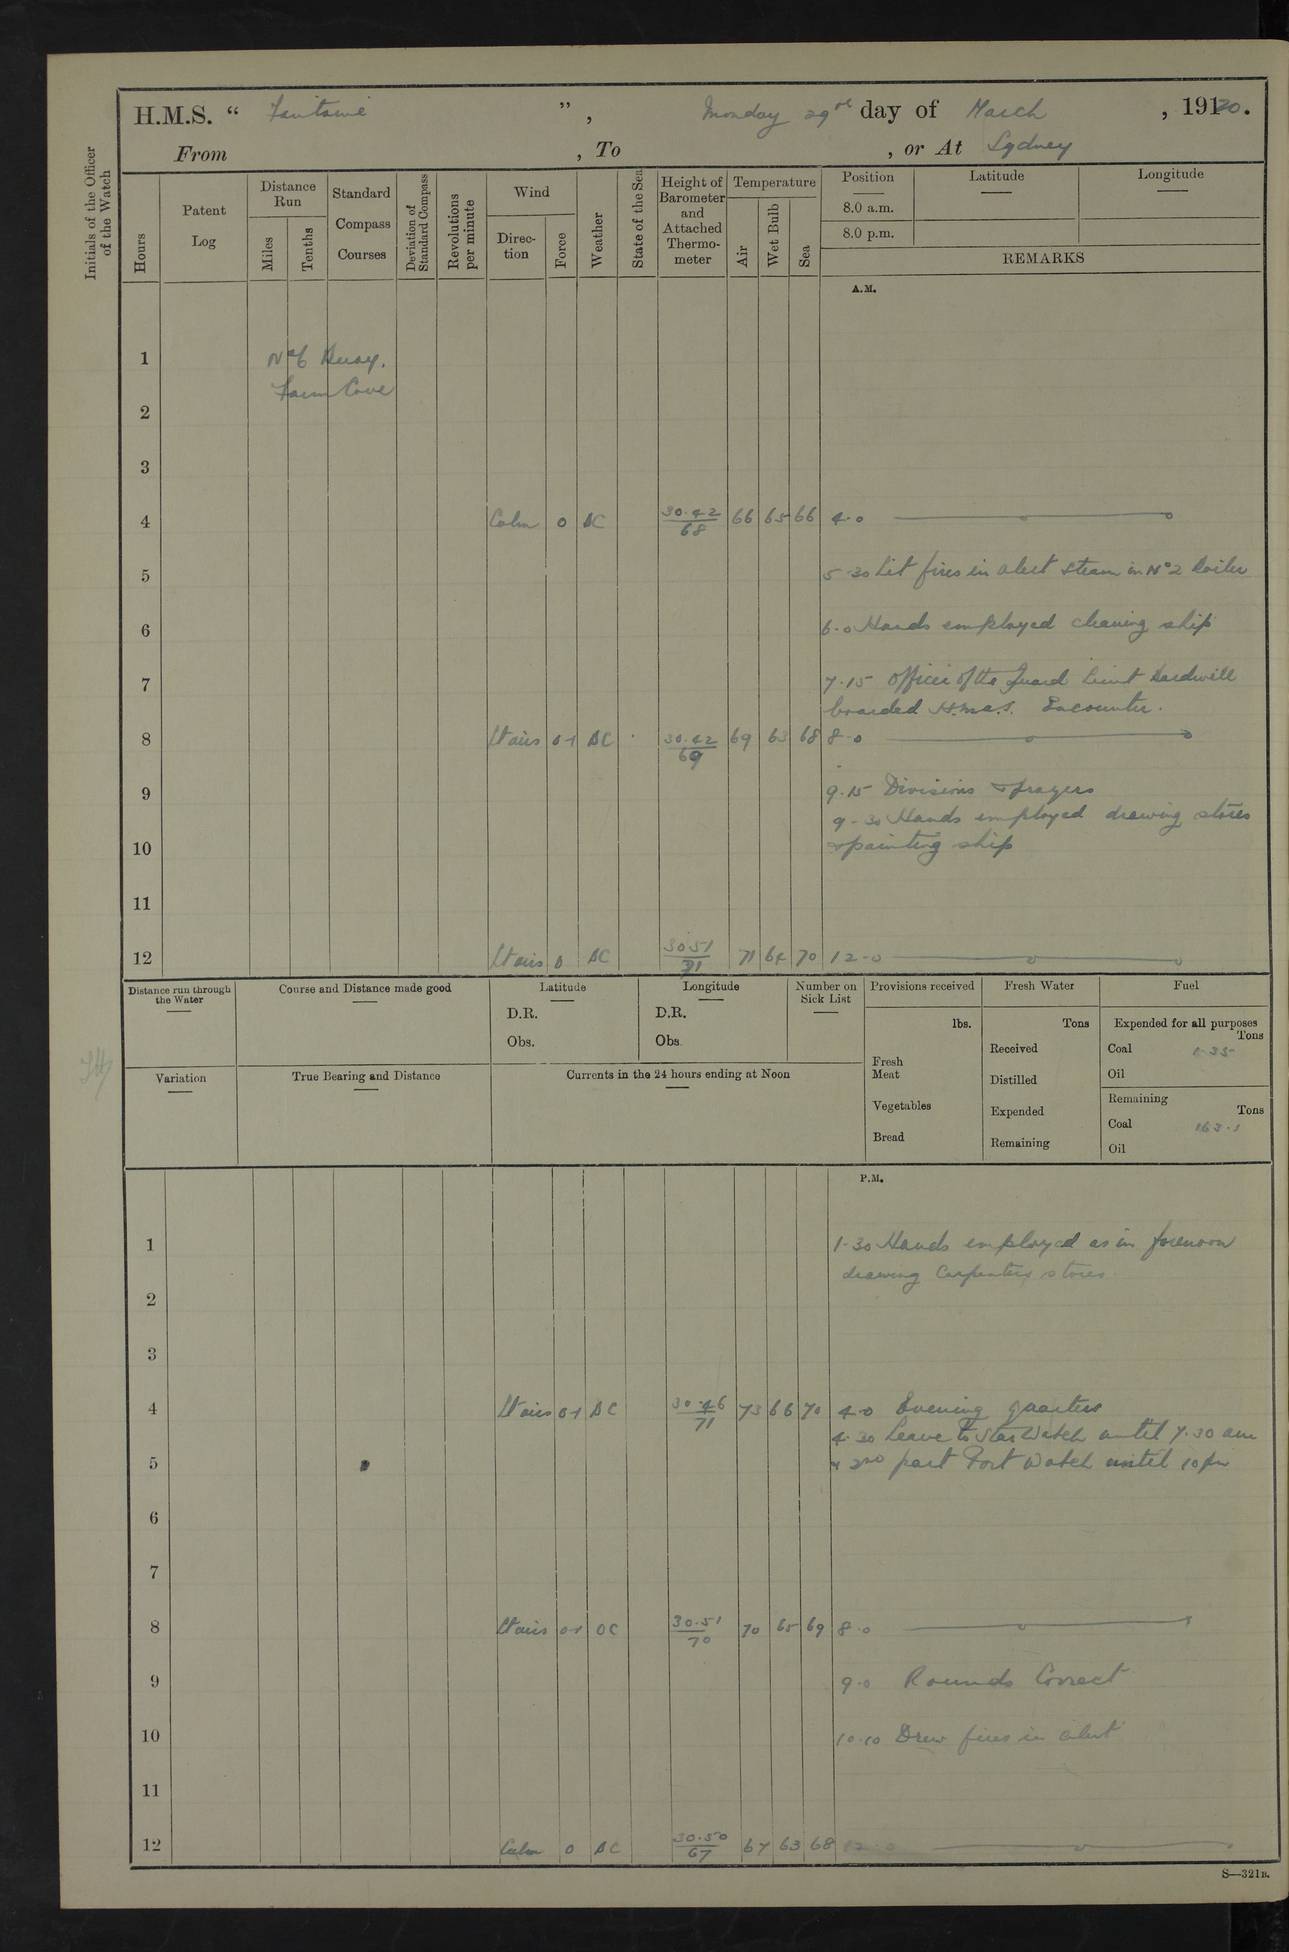 H.M.S. “ Fantome ”, Monday 29th day of March, 1920.
From , To , or At Sydney
Initials of the Officer of the Watch
Hours
Patent Log
Distance Run
Miles
Tenths
Standard Compass Courses
Deviation of Standard Compass
Revolutions per minute
Wind
Direc-tion
Force
Weather
State of the Sea
Height of Barometer and Attached Thermo-meter
Temperature
Air
Wet Bulb
Sea
Position
8.0 a.m.
8.0 p.m.
Latitude
Longitude
REMARKS
A.M.
1 No 6 Buoy.
Farm Cove
2
3
4 Calm 0 BC 30.42/68 66 65 66 4.0
5 5.30 Lit fires in alert steam in No 2 Boiler
6 6.0 Hands employed cleaning ship
7 7.15 Officer of the Guard Lieut
boarded H.M.A.S. Encounter.
8 Lt airs 0-1 BC 30.42/69 69 63 68 8.0
9 9.15 Divisions & prayers
9-30 Hands employed drawing stores
10 & painting ship
11
12 Lt airs 0 BC 30.51/71 71 64 70 12-0
Distance run through the Water
Course and Distance made good
Latitude
D.R.
Obs.
Longitude
D.R.
Obs.
Number on Sick List
Provisions received
lbs.
Fresh Meat
Vegetables
Bread
Fresh Water
Tons
Received
Distilled
Expended
Remaining
Fuel
Expended for all purposes
Tons
Coal 1.35
Oil
Remaining
Tons
Coal 163.1
Oil
Variation
True Bearing and Distance
Currents in the 24 hours ending at Noon
P.M.
1 1.30 Hands employed as in forenoon
drawing Carpenters stores
2
3
4 Lt airs 0-1 BC 30.46/71 73 66 70 4-0 Evening quarters
4.30 Leave to Star Watch until 7.30 am
5 & 2nd part Port Watch until 10 pm
6
7
8 Lt airs 0-1 OC 30.51/70 70 65 69 8.0
9 9.0 Rounds Correct
10 10.10 Drew fires in alert
11
12 Calm 0 BC 30.50/67 67 63 68 12.0
S—321B.